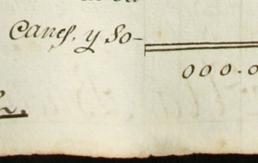 Canes, y So-
000.0